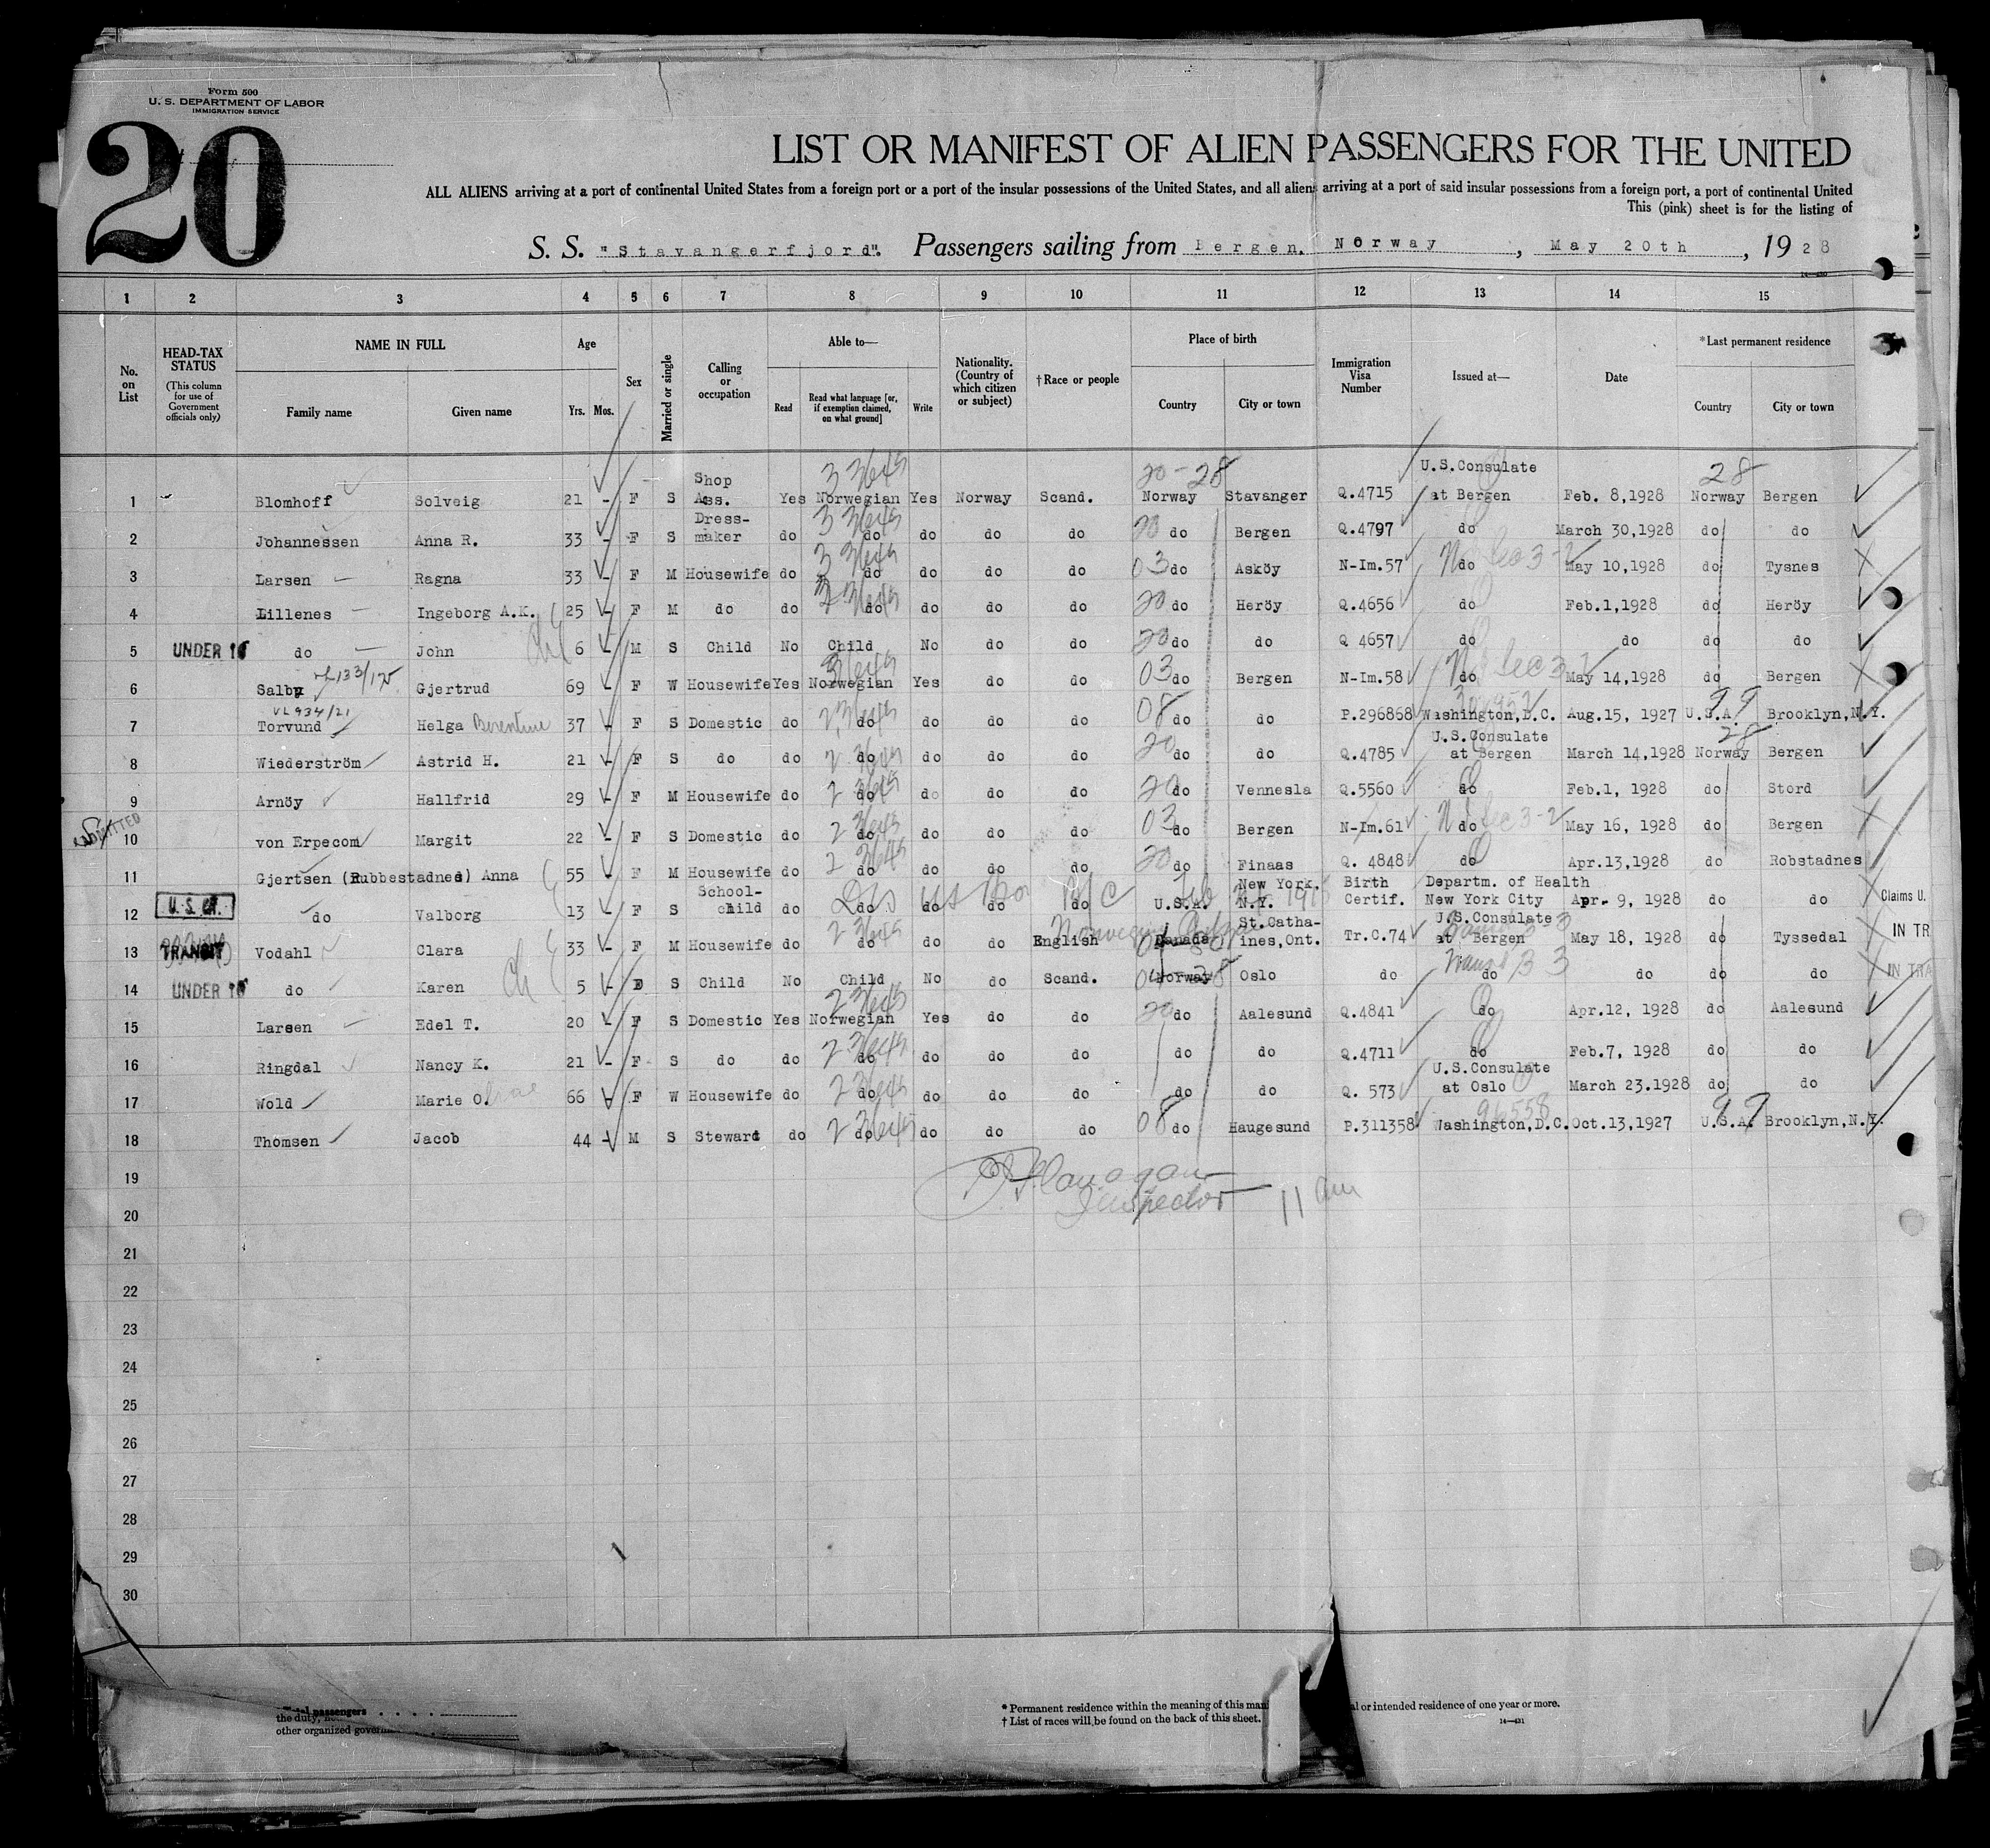 Form 500
U. S. DEPARTMENT OF LABOR
IMMIGRATION SERVICE
20
LIST OR MANIFEST OF ALIEN PASSENGERS FOR THE UNITED
ALL ALIENS arriving at a port of continental United States from a foreign port or a port of the insular possessions of the United States, and all aliens arriving at a port of said insular possessions from a foreign port, a port of continental United
This (pink) sheet is for the listing of
S. S. "Stavangerfjord". Passengers sailing from Bergen. Norway, May 20th, 1928
1 2 3 4 5 6 7 8 9 10 11 12 13 14 15
No. on List
HEAD-TAX STATUS (This column for use of Government officials only)
NAME IN FULL Family name Given name
Age Yrs. Mos.
Sex
Married or single
Calling or occupation
Able to— Read Read what language [or, if exemption claimed, on what ground] Write
Nationality. (Country of which citizen or subject)
†Race or people
Place of birth Country City or town
Immigration Visa Number
Issued at—
Date
*Last permanent residence Country City or town
20-28 28
1 Blomhoff Solveig 21 - F S Shop Ass. Yes Norwegian Yes Norway Scand. Norway Stavanger Q.4715 U.S.Consulate at Bergen Feb. 8,1928 Norway Bergen
2 Johannessen Anna R. 33 - F S Dress-maker do do do do do 20 do Bergen Q.4797 do March 30,1928 do do
3 Larsen Ragna 33 - F M Housewife do do do do do 03 do Asköy N-Im.57 do May 10,1928 do Tysnes
4 Lillenes Ingeborg A.K. 25 - F M do do do do do do 20 do Heröy Q.4656 do Feb.1,1928 do Heröy
5 UNDER 16 do John 6 - M S Child No Child No do do 20 do do Q 4657 do do do do
6 Salby Gjertrud 69 - F W Housewife Yes Norwegian Yes do do 03 do Bergen N-Im.58 do May 14,1928 do Bergen
VL934/21
7 Torvund Helga Berentine 37 - F S Domestic do do do do do 08 do do P.296868 Washington,D.C. Aug.15, 1927 U.S.A. 99 Brooklyn,N.Y.
8 Wiederström Astrid H. 21 - F S do do do do do do 20 do do Q.4785 U.S.Consulate at Bergen March 14,1928 28 Norway Bergen
9 Arnöy Hallfrid 29 - F M Housewife do do do do do 20 do Vennesla Q.5560 do Feb.1, 1928 do Stord
ADMITTED
10 von Erpecom Margit 22 - F S Domestic do do do do do 03 do Bergen N-Im.61 do May 16, 1928 do Bergen
11 Gjertsen (Rubbestadnes) Anna 55 - F M Housewife do do do do do 20 do Finaas Q. 4848 do Apr.13,1928 do Robstadnes
12 U.S. Cit. do Valborg 13 - F S School-child do do do do do U.S.A. New York, N.Y. Birth Certif. Departm. of Health New York City Apr. 9, 1928 do do Claims U.
13 TRANSIT Vodahl Clara 33 - F M Housewife do do do do English Canada St.Catha-ines,Ont. Tr.C.74 U.S.Consulate at Bergen May 18, 1928 do Tyssedal IN TR
14 UNDER 16 do Karen 5 - S Child No Child No do Scand. Norway Oslo do do do do do IN TRA
15 Larsen Edel T. 20 - F S Domestic Yes Norwegian Yes do do 20 do Aalesund Q.4841 do Apr.12, 1928 do Aalesund
16 Ringdal Nancy K. 21 - F S do do do do do do do do Q.4711 do Feb.7, 1928 do do
17 Wold Marie O. 66 F W Housewife do do do do do do do Q. 573 U.S.Consulate at Oslo March 23.1928 do do
18 Thomsen Jacob 44 - M S Steward do do do do do 08 do Haugesund P.311358 96558 Washington,D.C. Oct.13,1927 99 U.S.A. Brooklyn,N.Y.
19 Flanagan
20 Inspector 11 am
21
22
23
24
25
26
27
28
29
30
passengers . . . .
the duty,
other organized govern
* Permanent residence within the meaning of this mani al or intended residence of one year or more.
† List of races will be found on the back of this sheet.
14—431